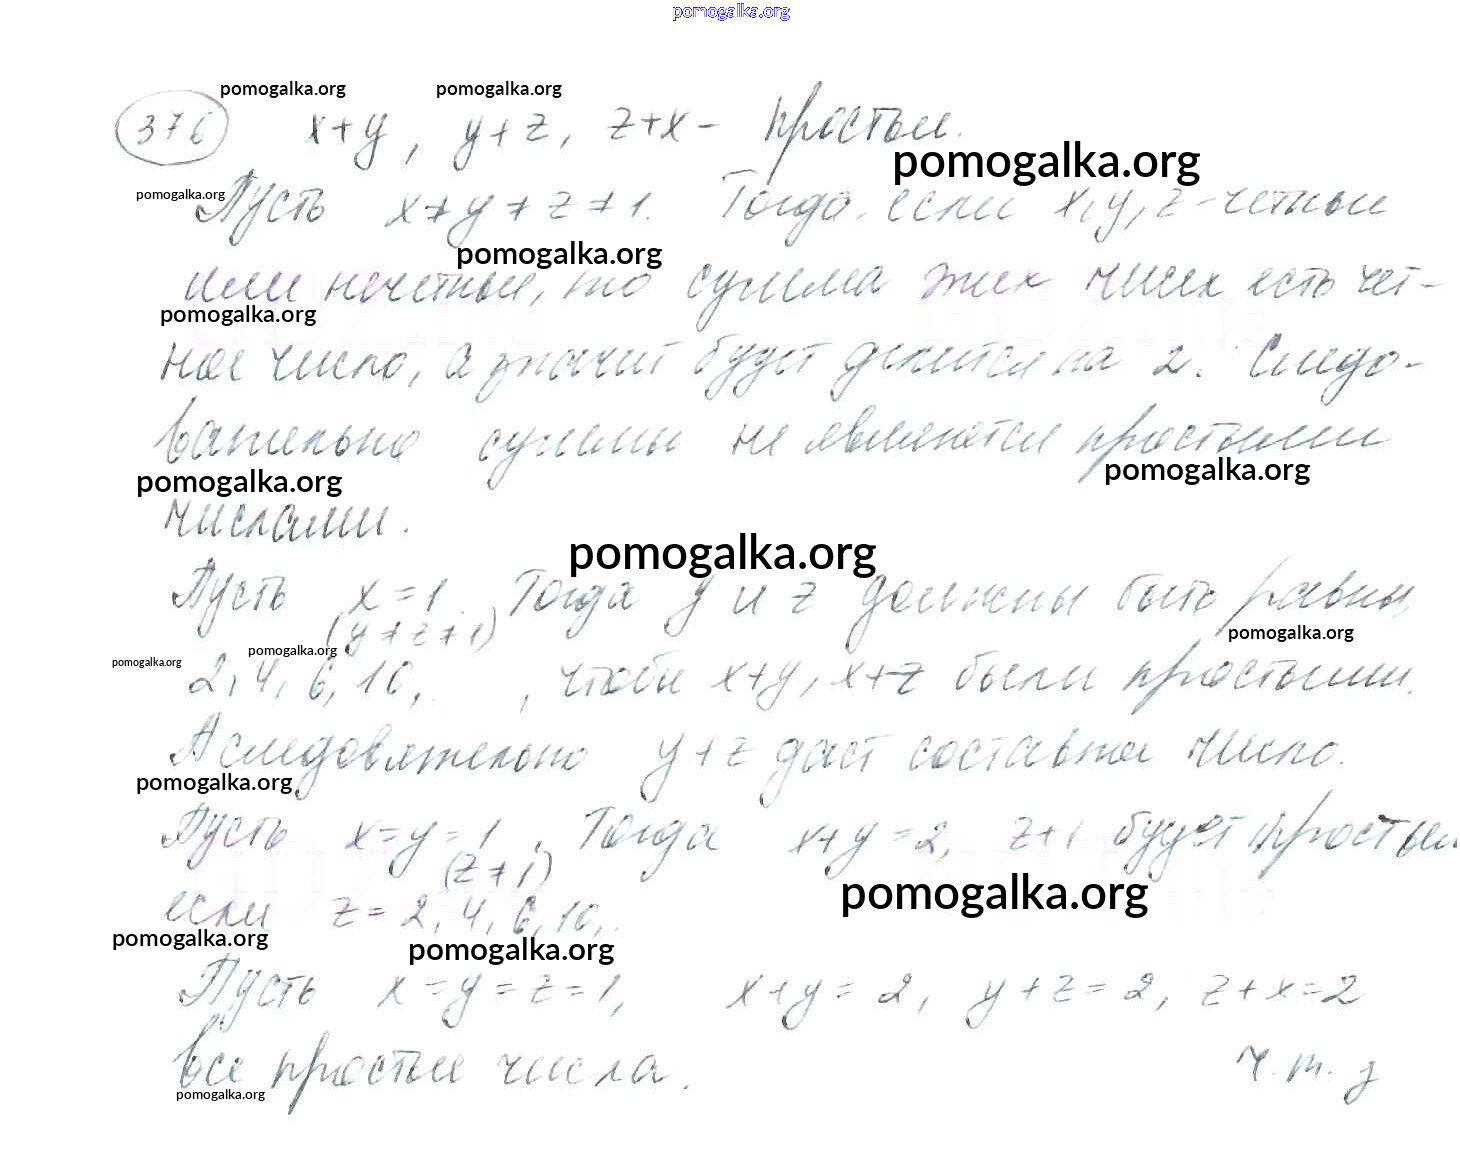 pomogalka.org
pomogalka.org pomogalka.org
376 x+y, y+z, z+x – простые.
pomogalka.org
pomogalka.org
Пусть x≠y≠z≠1. Тогда, если x, y, z - четные
pomogalka.org
или нечетные, то сумма этих чисел есть чет-
pomogalka.org
ное число, а значит будет делится на 2. Следо-
вательно суммы не являются простыми
pomogalka.org pomogalka.org
числами.
pomogalka.org
Пусть x=1. Тогда y и z должны быть равны
(y≠z≠1)
pomogalka.org
pomogalka.org pomogalka.org
2, 4, 6, 10, , чтобы x+y, x+z были простыми.
А следовательно y+z даст составное число.
pomogalka.org
Пусть x=y=1. Тогда x+y=2, z+1 будет простым
(z≠1)
pomogalka.org
если z=2, 4, 6, 10,..
pomogalka.org pomogalka.org
Пусть x=y=z=1, x+y=2, y+z=2, z+x=2
все простые числа. ч.т.д
pomogalka.org